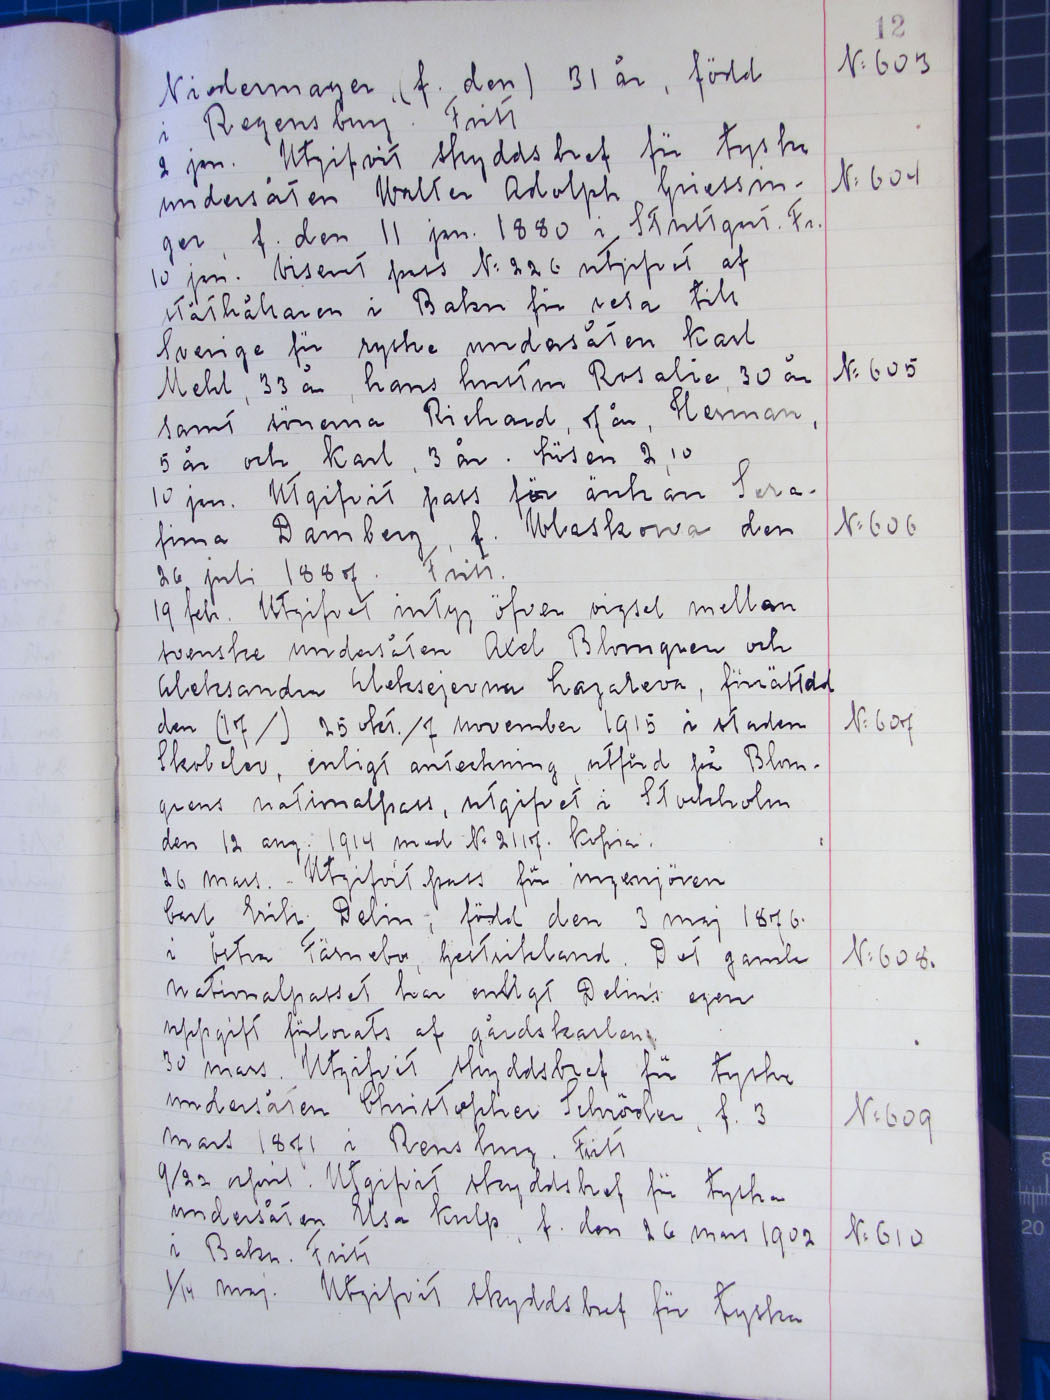 12
Niedermayer, (f. den) 31 år, född N: 603
i Regensburg. Fritt
2 jan. Utgifvit skyddsbref för tyska
undersåten Walter Adolph Griessin- N: 604
ger, f. den 11 jan. 1880 i Stuttgart. Fr.
10 jan. Viserat pass N: 226 utgifvet af
ståthållaren i Baku för resa till
Sverige för ryske undersåten Karl
Mehl, 33 år, hans hustru Rosalie, 30 år N: 605
samt sönerna Richard, 7 år, Herman,
5 år och Karl, 3 år. Lösen 2,10
10 jan. Utgifvit pass för änkan Sera-
fima Damberg, f. Wlaskowa den N: 606
26 juli 1887. Fritt.
19 feb. Utgifvet intyg öfver vigsel mellan
svenske undersåten Axel Blomgren och
Aleksandra Aleksejevna Lazareva, förättdd
den (17/) 25 okt./7 november 1915 i staden N: 607
Skobelev, enligt anteckning utförd på Blom-
grens nationalpass, utgifvet i Stockholm
den 12 aug. 1914 med N: 2117. Kopia.
26 mars. - Utgifvit pass för ingenjören
Carl Erik Delin, född den 3 maj 1876.
i Östra Färnebo, Gestrikland. Det gamla N: 608.
nationalpasset har enligt Delins egen
uppgift förlorats af gårdskarlen.
30 mars. Utgifvit skyddsbref för tyska
undersåten Christopher Schröder, f. 3 N: 609
mars 1871 i Rensburg. Fritt
9/22 april. Utgifvit skyddsbref för tyska
undersåten Elsa Kulp, f. den 26 mars 1902 N: 610
i Baku. Fritt
1/14 maj. Utgifvit skyddsbref för tyska